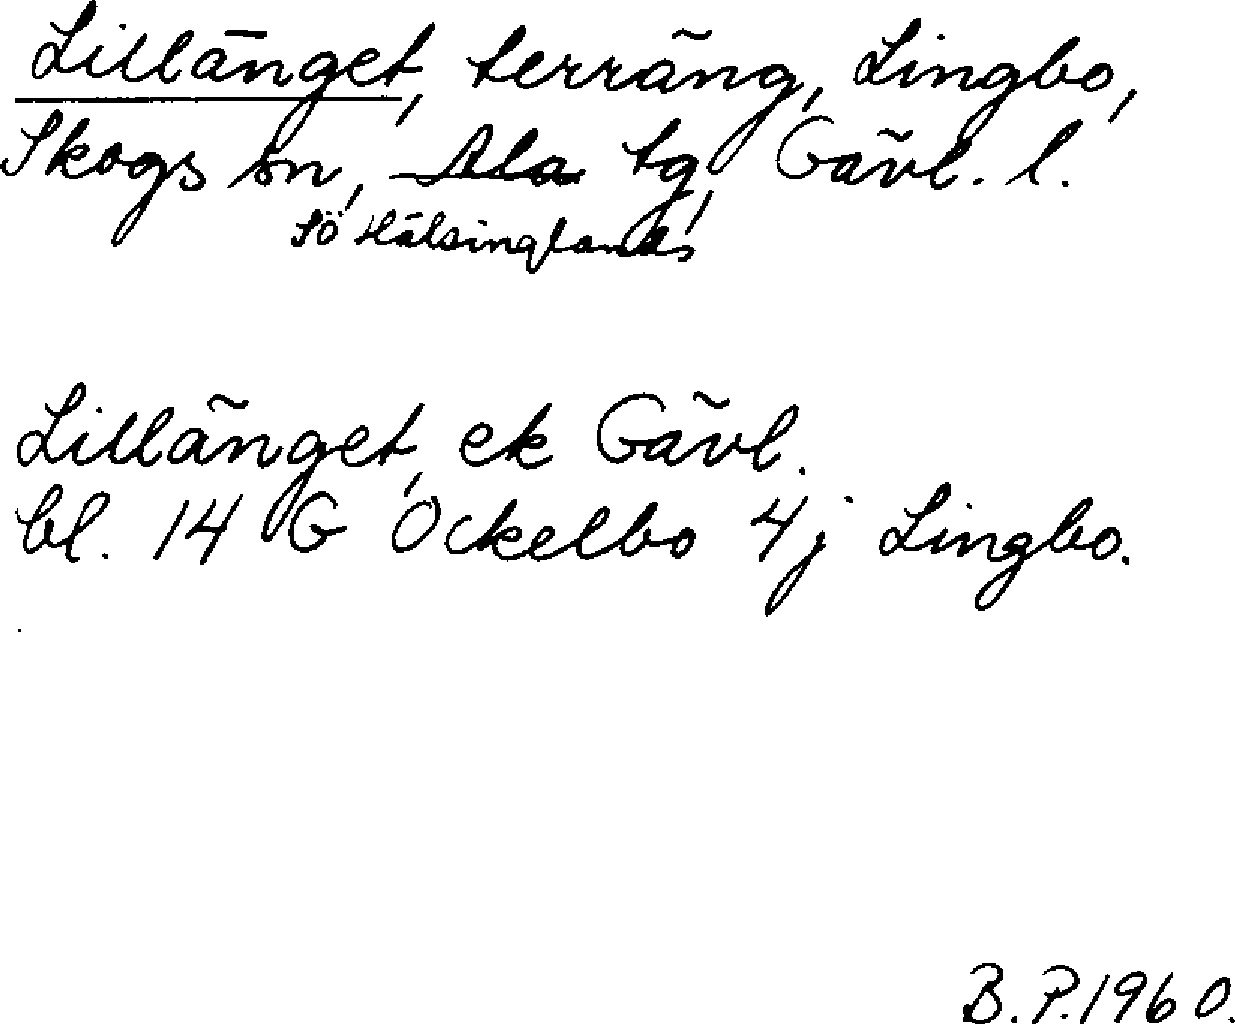 Lillänget, terräng, Lingbo,
Skogs sn, Ala tg, Gävl. l.
Sö Hälsinglands
Lillänget, ek Gävl.
bl. 14 G Ockelbo 4j Lingbo.
B.P. 1960.